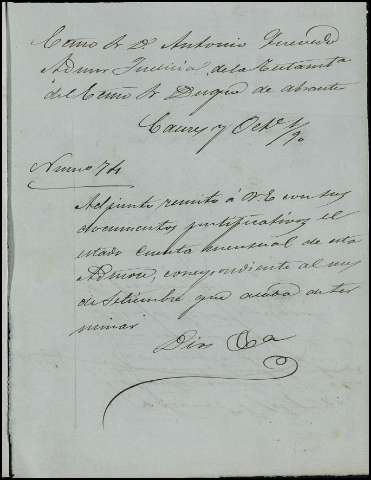 Excmo Sr Dn Antonio Quevedo
Admor Judicial de la Testamta
del Excmo Sr Duque de Abrantes
Caceres y Octe 1/90
Numo 74
Adjunto remito á V.E con sus
documentos justificativos el
estado cuenta mensual de esta
Admon, correspondiente al mes
de Setiembre que acaba de ter
minar
Dios &a